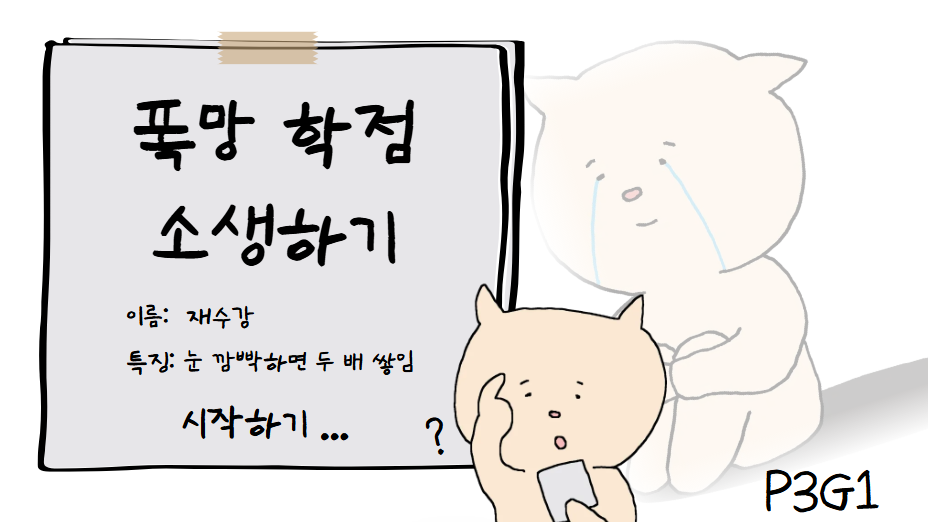 폭망 학점
소생하기
이름: 재수강
특징: 눈 깜빡하면 두 배 쌓임
시작하기 ...
?
P3G1